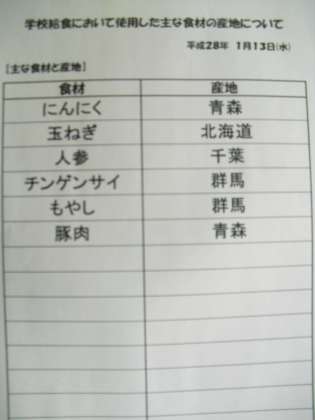 学校給食において使用した主な食材の産地について
平成28年 1月13日(水)
[主な食材と産地]
食材 産地
にんにく 青森
玉ねぎ 北海道
人参 千葉
チンゲンサイ 群馬
もやし 群馬
豚肉 青森